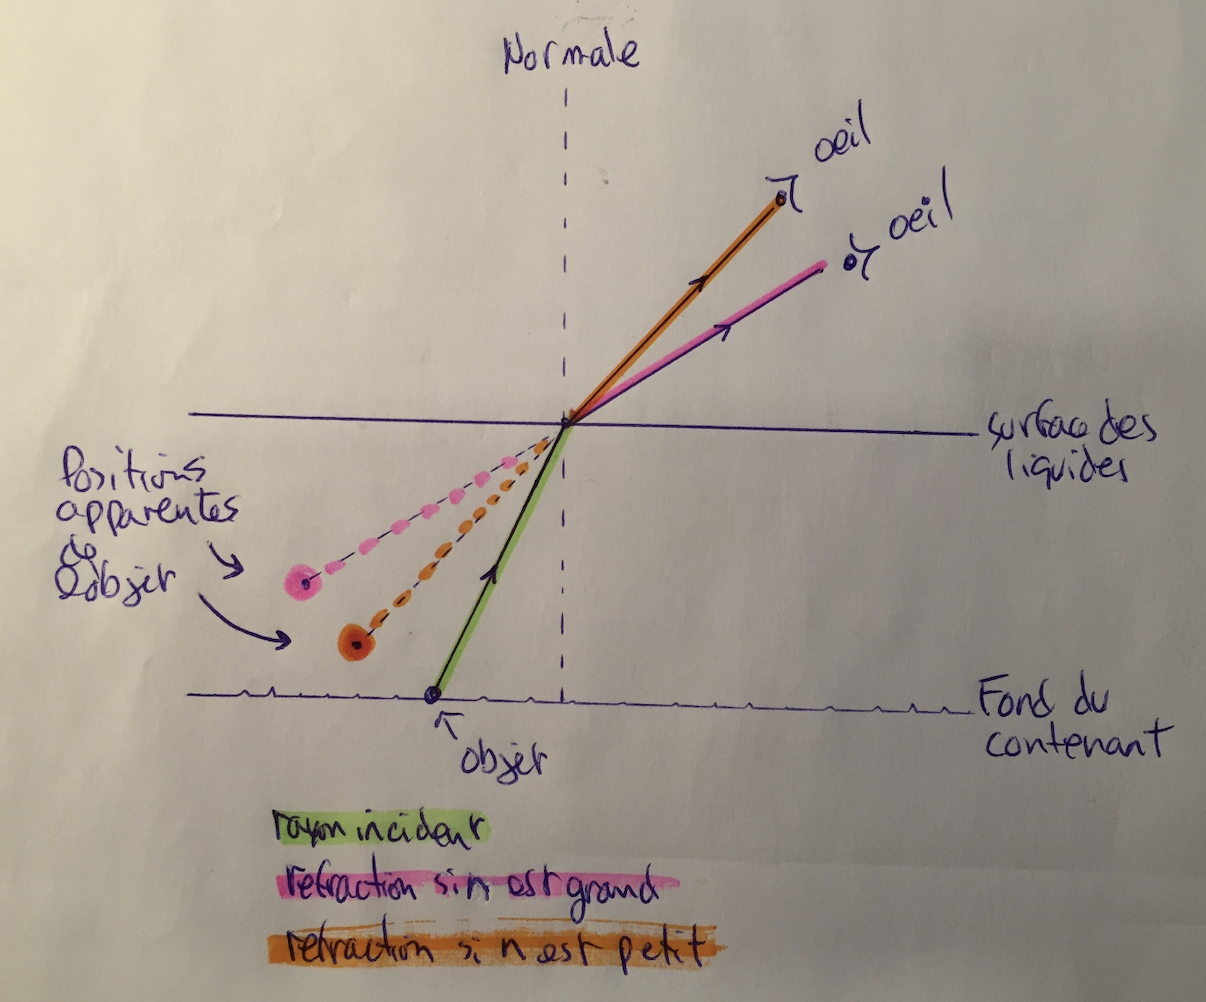 Normale
oeil
oeil
surface des
liquides
Positions
apparentes
de
l'objet
Fond du
contenant
objet
rayon incident
refraction si n est grand
refraction si n est petit